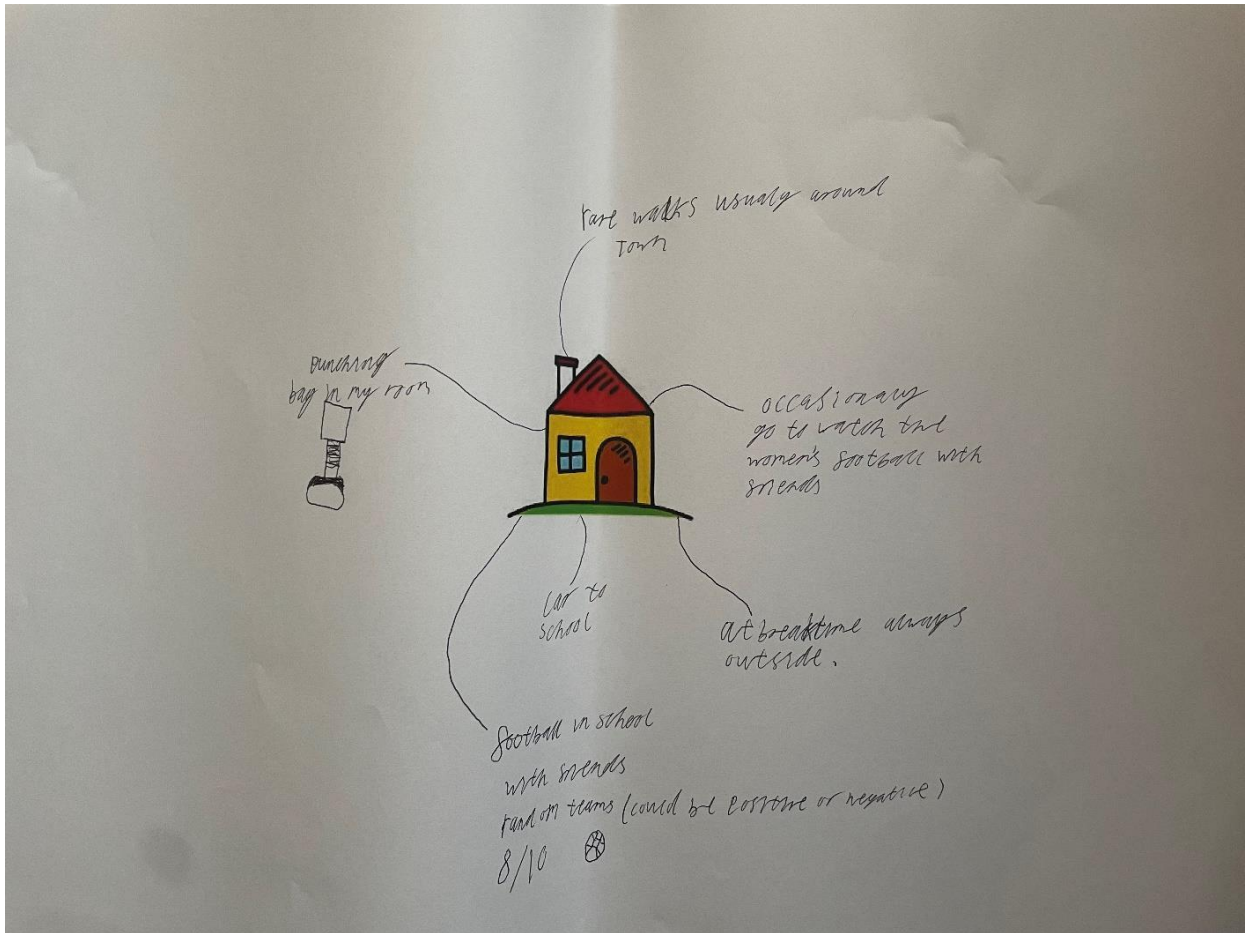 rare walks usualy around
town
punching
bag in my room
occasionaly
go to watch the
women's football with
friends
car to
school
at breaktime always
outside.
football in school
with friends
random teams (could be positive or negative)
8/10